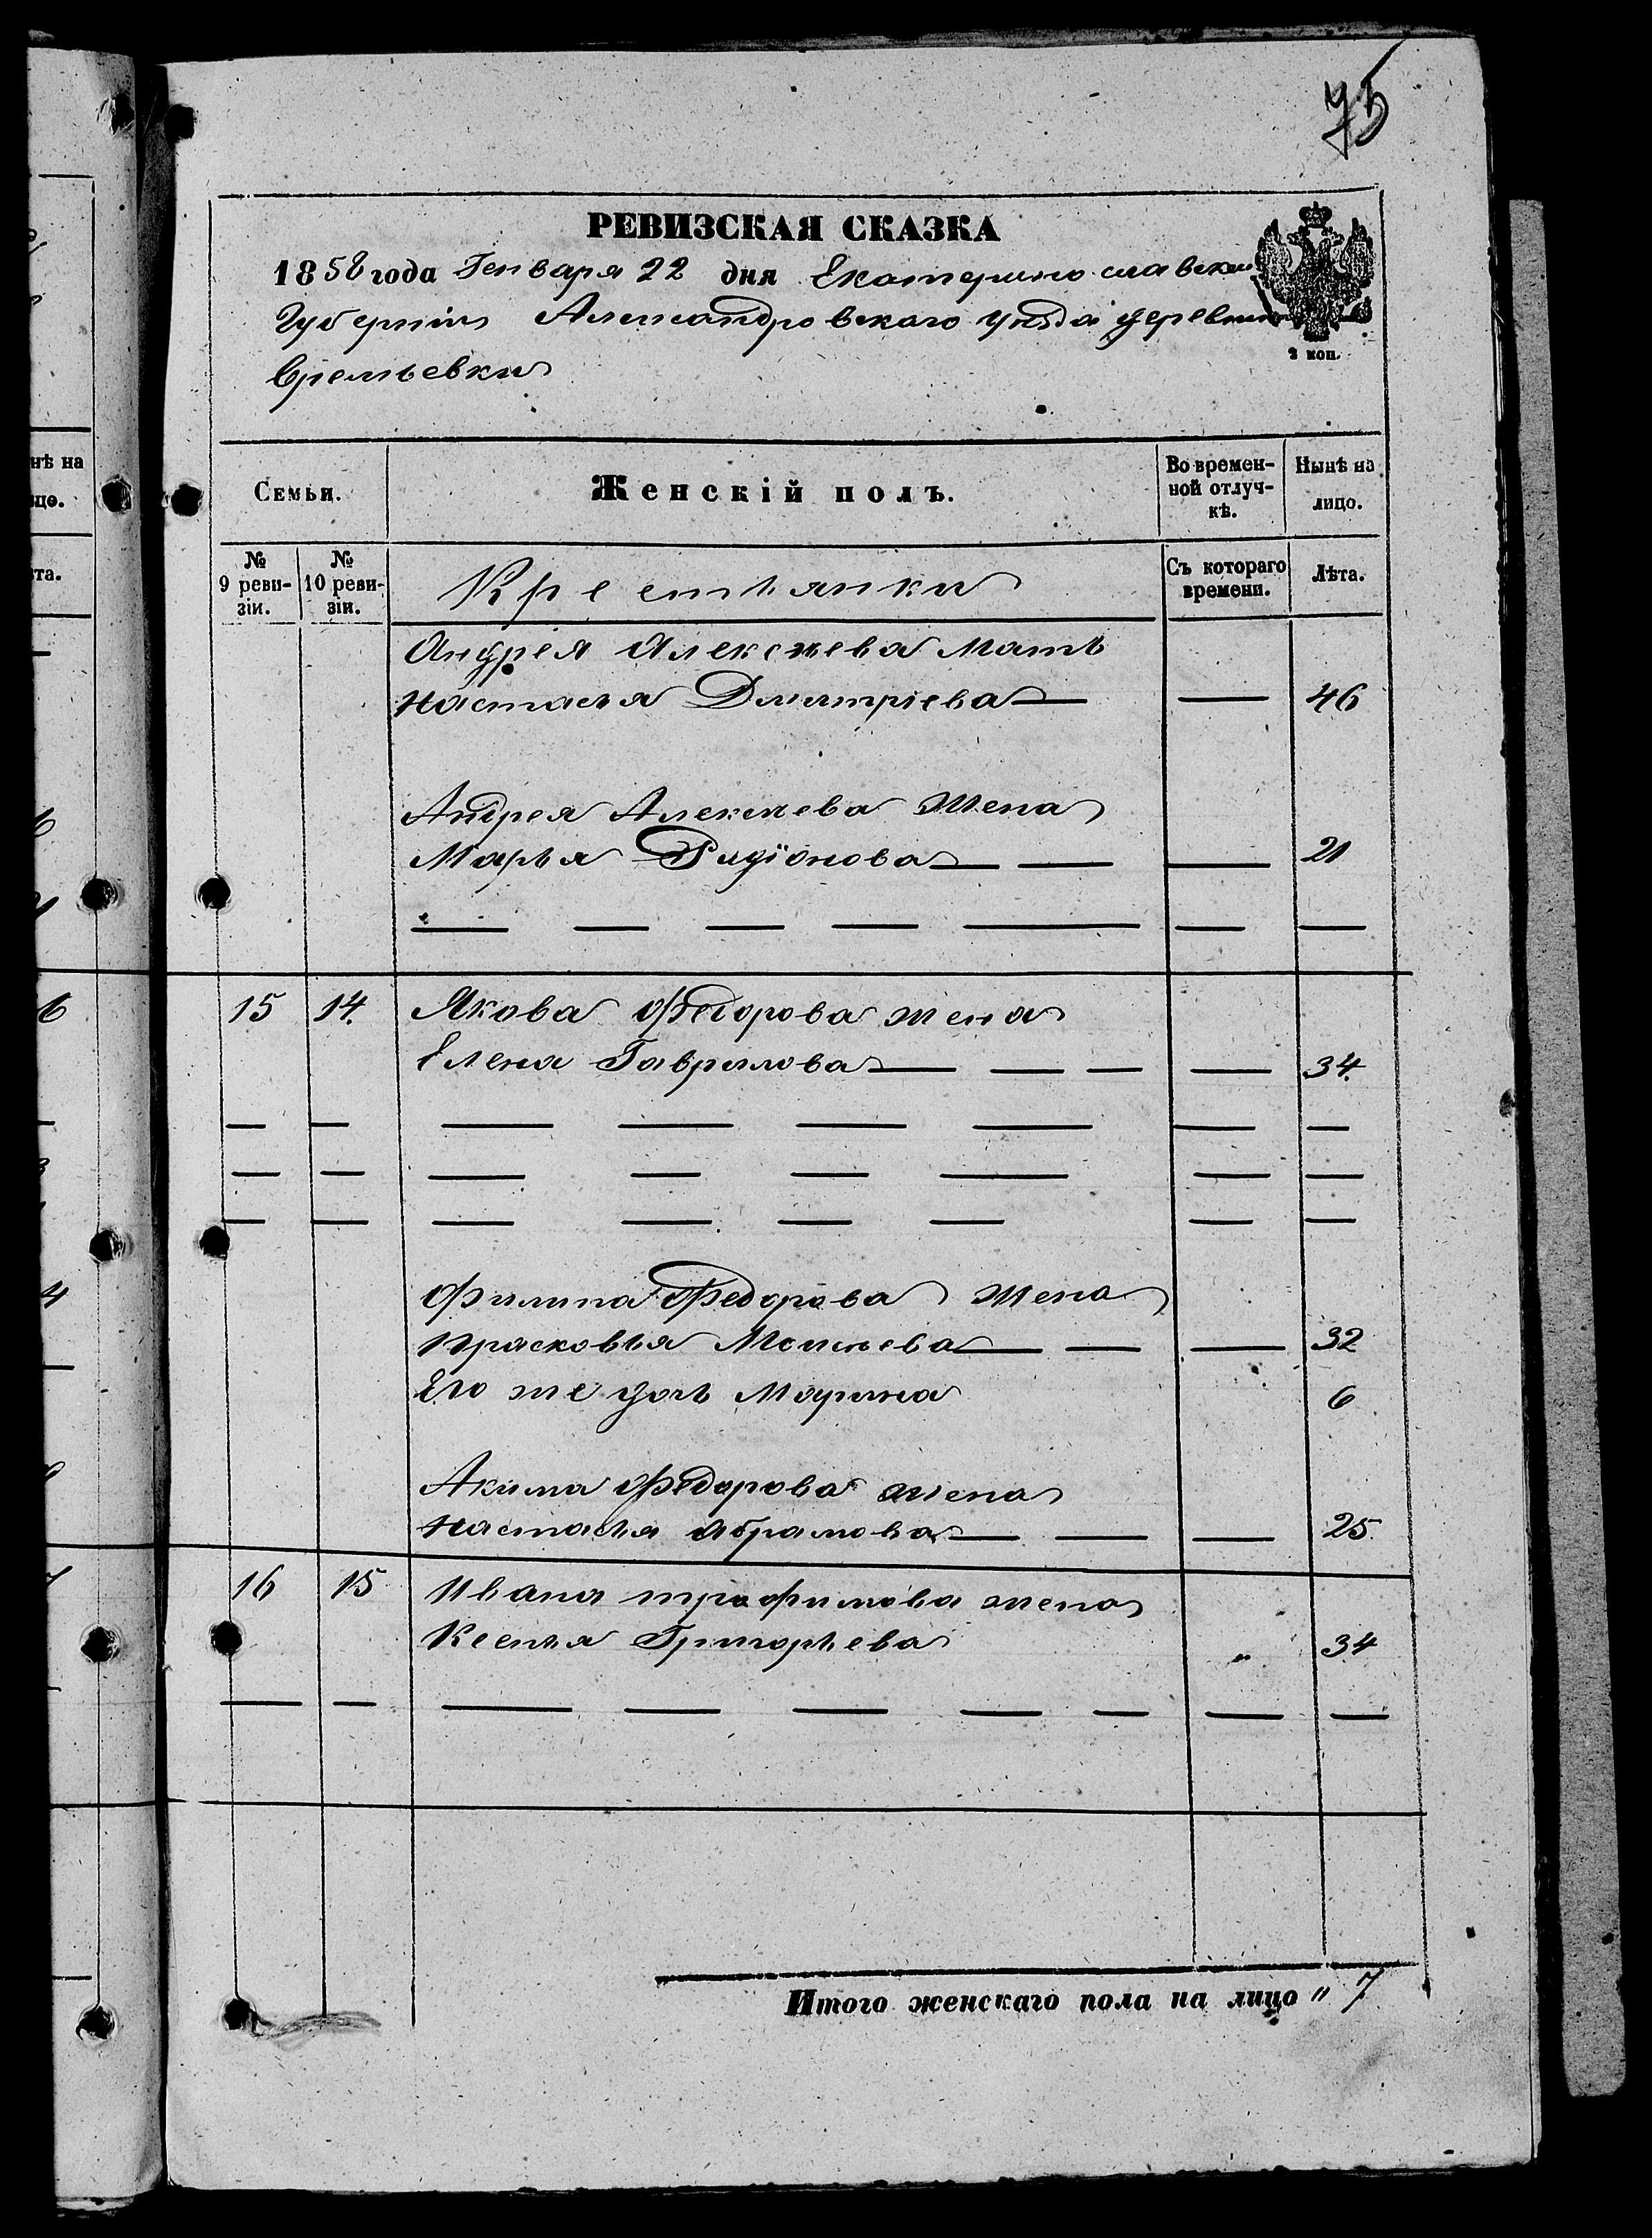 75
РЕВИЗСКАЯ СКАЗКА
1858 года Генваря 22 дня Екатеринославской
Губерніи Александровскаго уѣзда деревни
Времьевки
2 коп.
Семьи. Женскій полъ. Во времен-ной отлуч-кѣ. Нынѣ на лицо.
№ 9 реви-зіи. № 10 реви-зіи. Крестьянки Съ котораго времени. Лѣта.
Андрея Алексѣева мать
Настасья Дмитріева — — 46
Андрея Алексѣева жена
Марья Радіонова — — — 21
15 14. Якова Федорова жена
Елена Гаврилова — — — — 34.
Филипа Федорова жена
Прасковья Моисѣева — — — 32
Его же дочь Марина 6
Акима Федорова жена
Настасья Абрамова — — — 25.
16 15 Ивана Трофимова жена
Ксенья Григорьева „ 34
Итого женскаго пола на лицо „ 7
нѣ на
цо.
та.
6
4